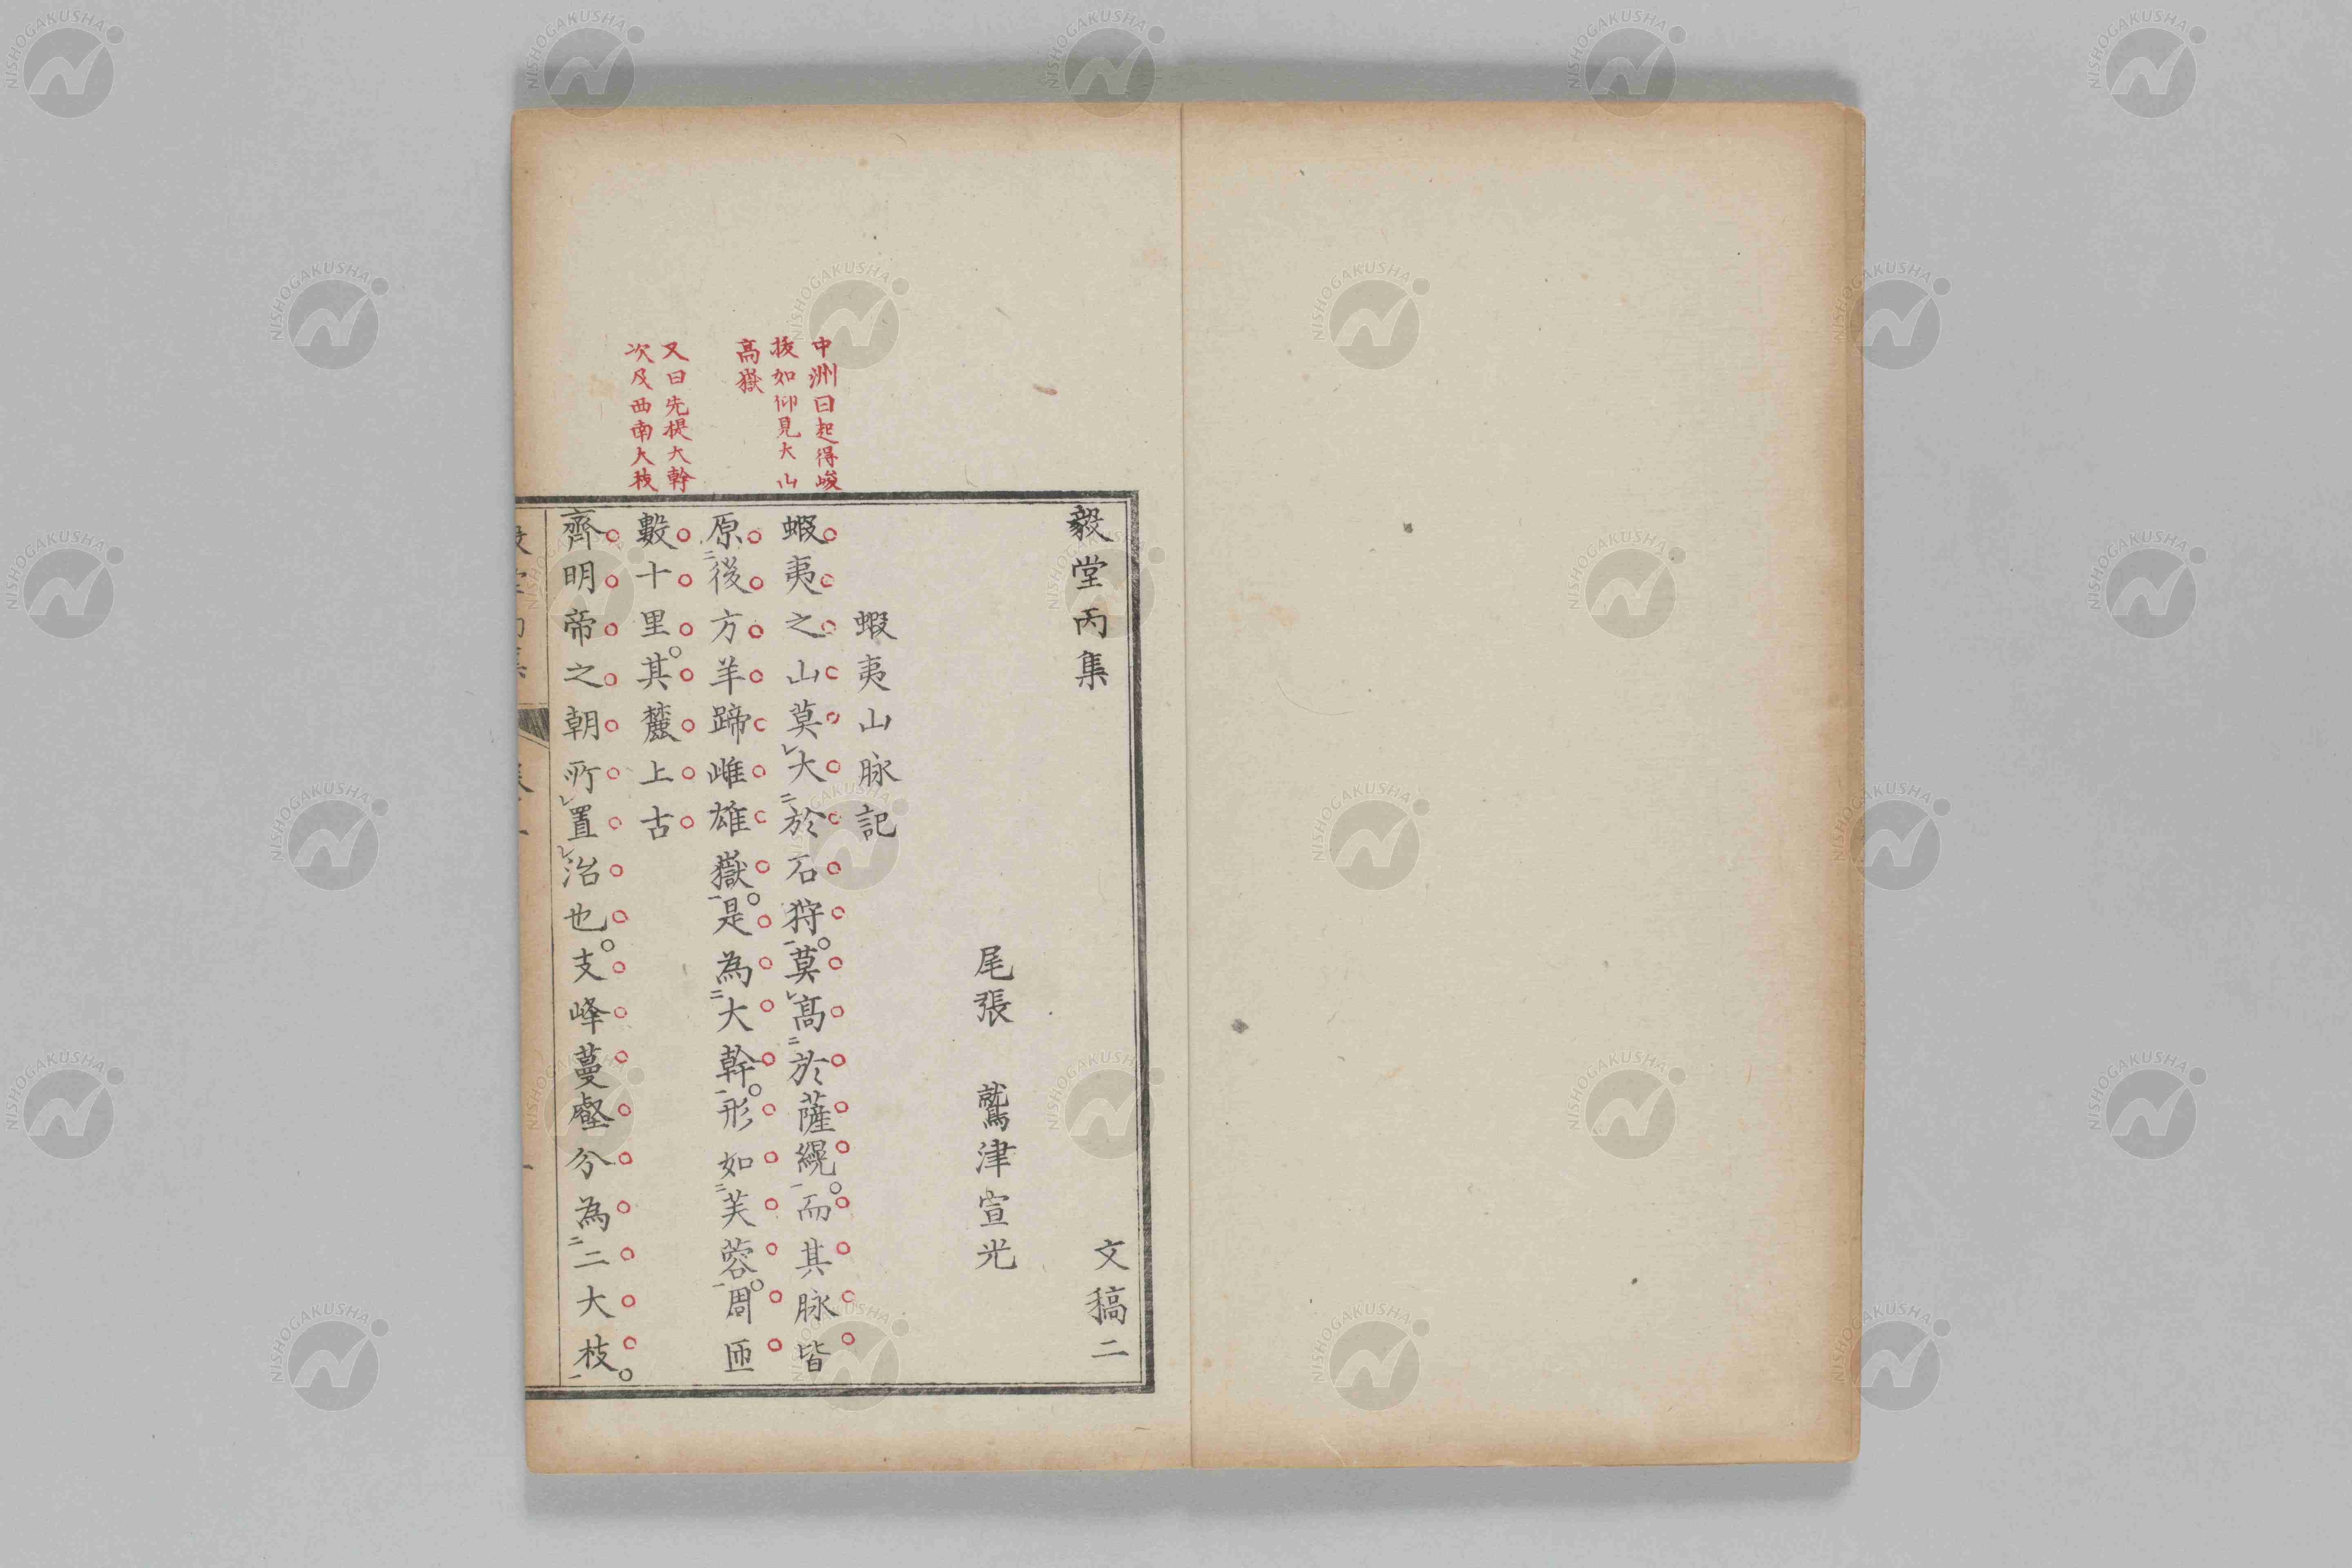 毅堂丙集　文稿二
尾張　鷲津宣光
蝦夷山脉記
蝦夷之山莫大於石狩。莫高於薩繉。而其脉皆
原後方羊蹄雌雄嶽。是為大幹。形如芙蓉。周匝
數十里。其麓上古
齊明帝之朝所置治也。支峰蔓壑分為二大枝。
中洲曰起得峻
拔如仰見大山
高嶽
又曰先提大幹
次及西南大枝
NISHOGAKUSHA